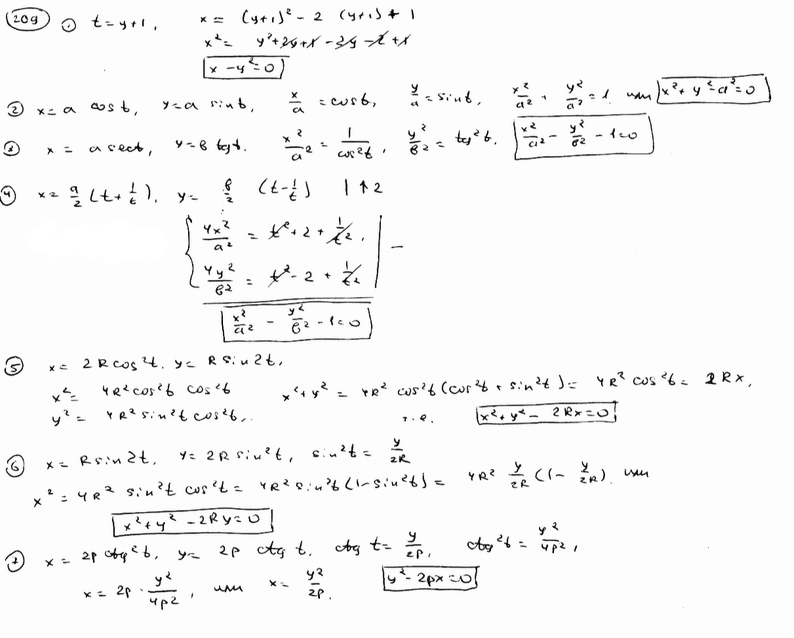 209 1) t = y+1, x = (y+1)² - 2 (y+1) + 1
x² = y² + 2y + 1 - 2y - 2 + 1
x - y² = 0
2) x = a cos t, y = a sin t, x/a = cos t, y/a = sin t, x²/a² + y²/a² = 1. или x² + y² - a² = 0
3) x = a sec t, y = в tg t. x²/a² = 1/cos²t, y²/в² = tg²t. x²/a² - y²/в² - 1 = 0
4) x = a/2 (t + 1/t), y = в/2 (t - 1/t) | ↑ 2
4x²/a² = t² + 2 + 1/t²,
4y²/в² = t² - 2 + 1/t² | -
x²/a² - y²/в² - 1 = 0
5) x = 2R cos²t. y = R sin 2t,
x² = 4R² cos²t cos²t x² + y² = 4R² cos²t (cos²t + sin²t) = 4R² cos²t = 2Rx,
y² = 4R² sin²t cos²t, т.е. x² + y² - 2Rx = 0
6) x = R sin 2t, y = 2R sin²t, sin²t = y/2R
x² = 4R² sin²t cos²t = 4R² sin²t (1 - sin²t) = 4R² y/2R (1 - y/2R). или
x² + y² - 2Ry = 0
7) x = 2p ctg²t, y = 2p ctg t. ctg t = y/2p, ctg²t = y²/4p²,
x = 2p · y²/4p², или x = y²/2p. y² - 2px = 0